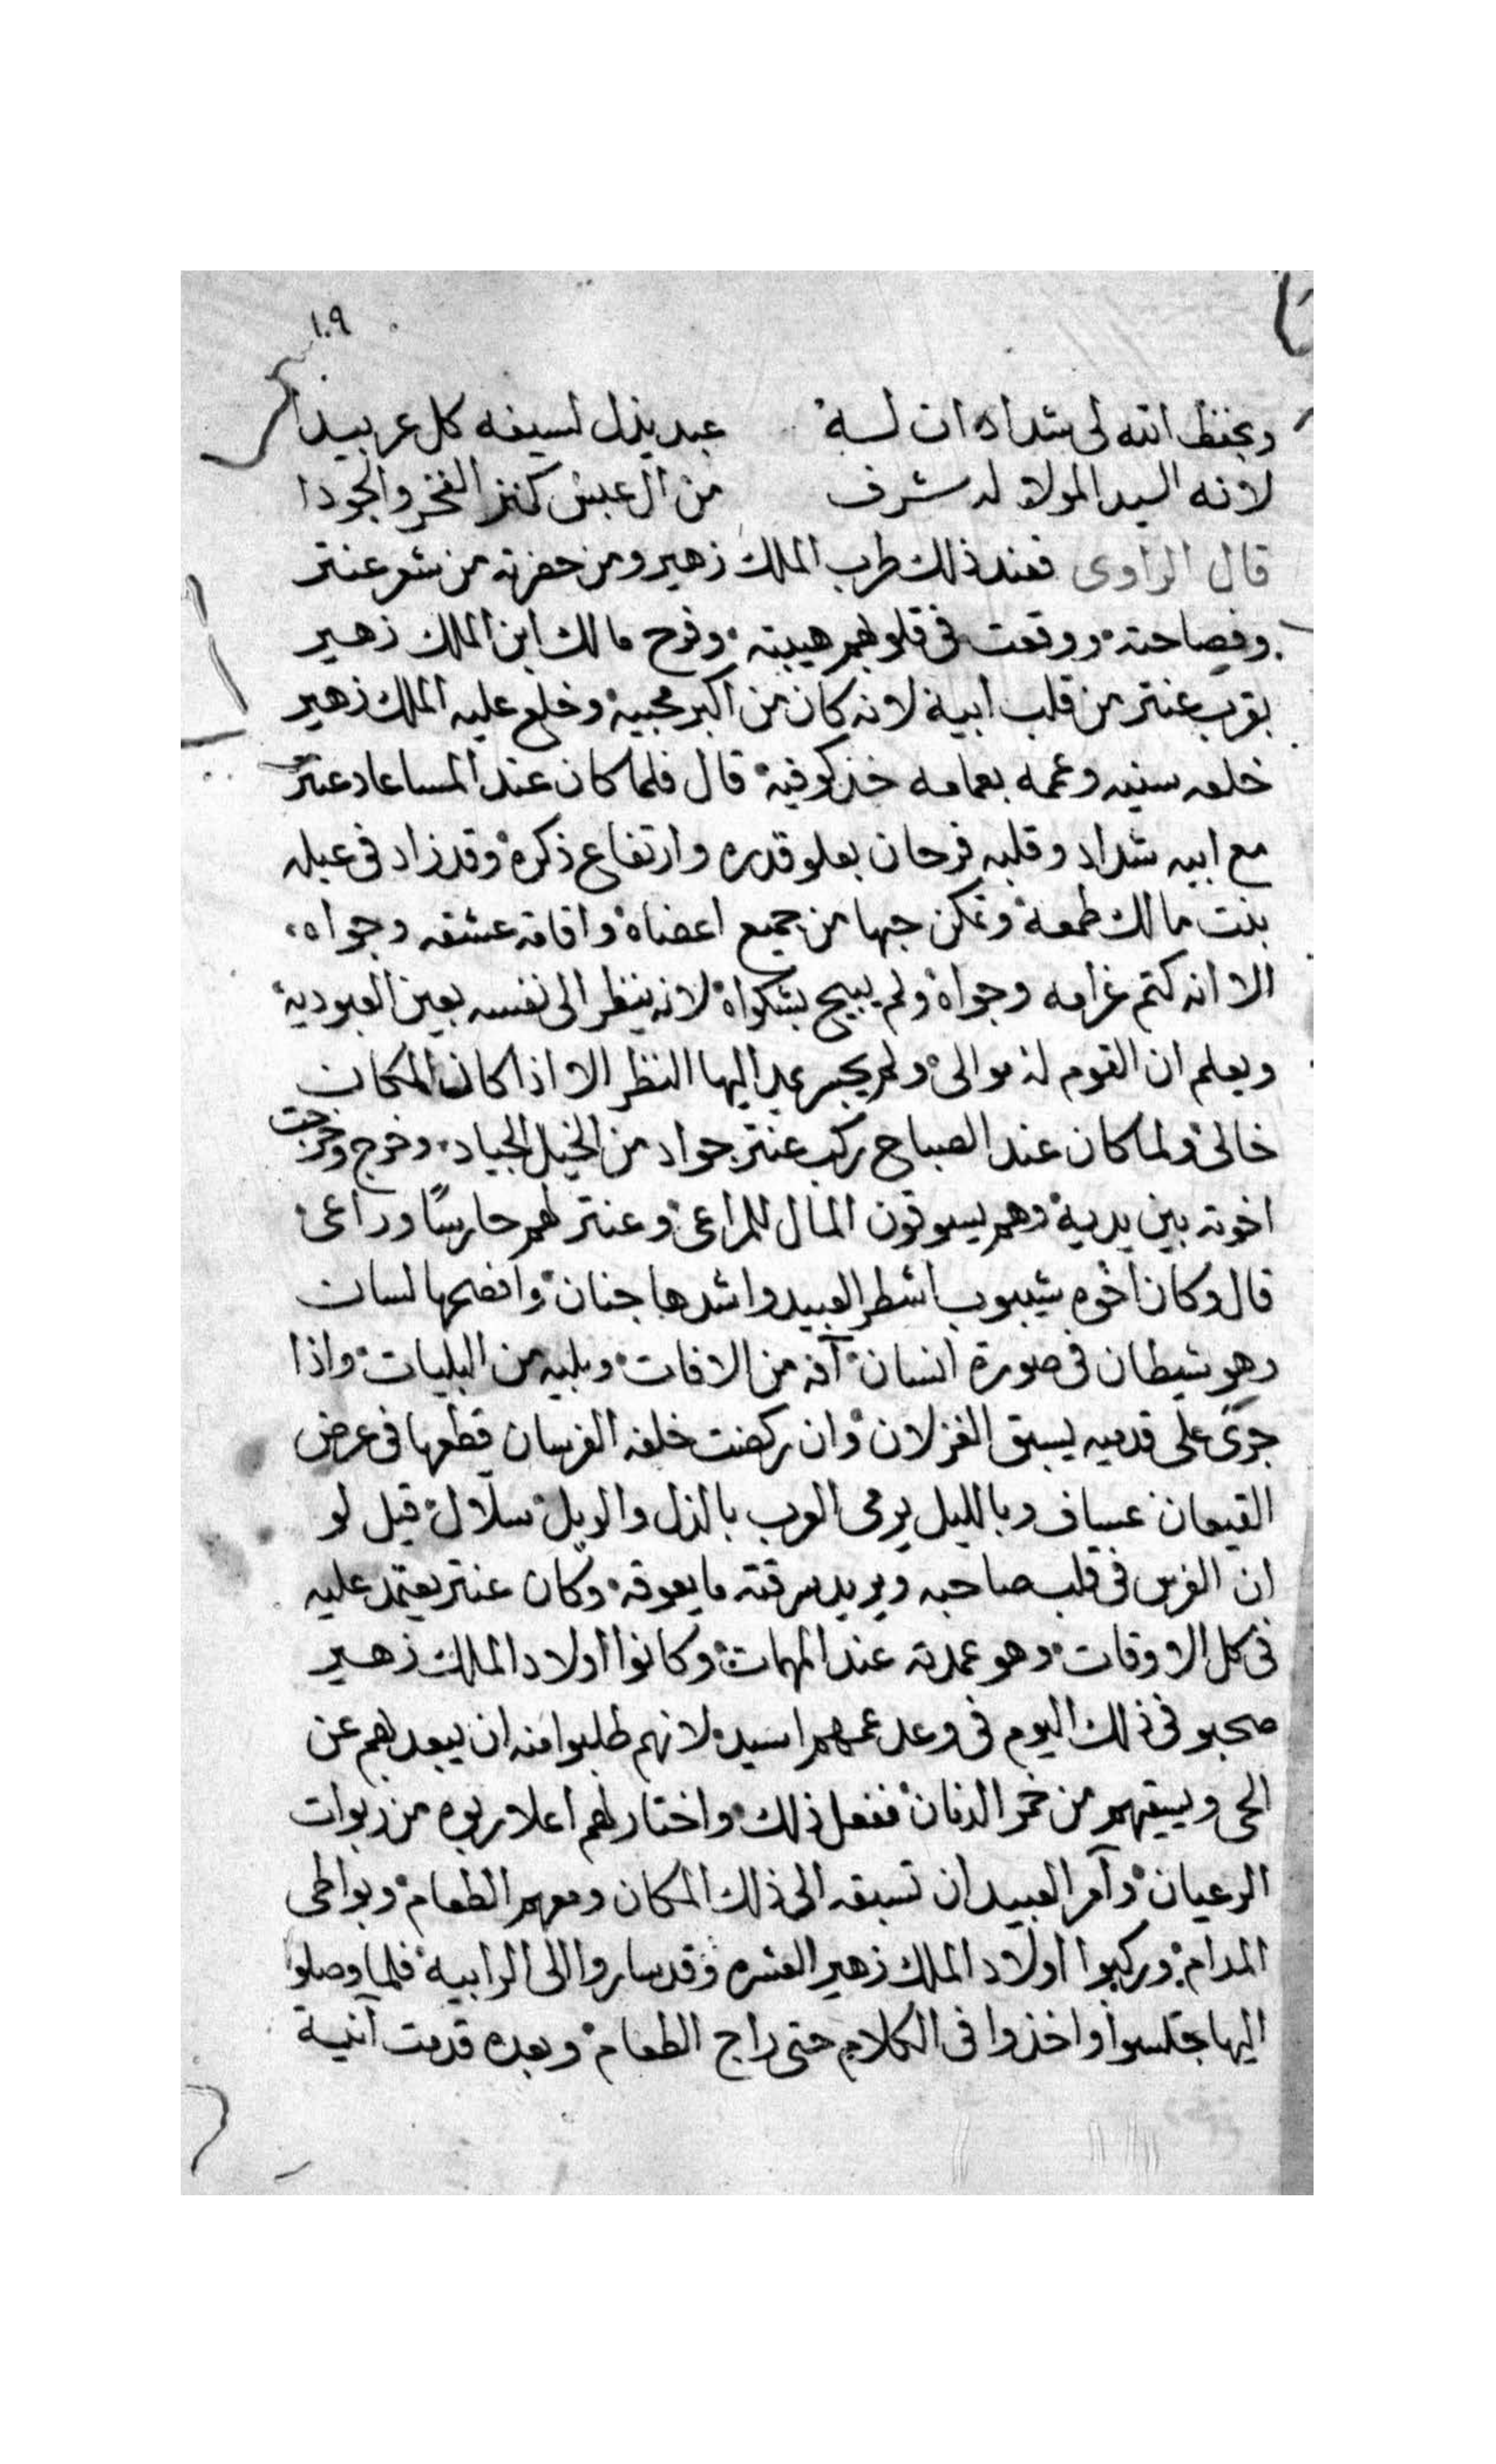 ١٠٩
ويحفظ الله لى شداد ان لسه عبد يذل لسيفه كل عربيدا
لانه السيد المولا له شرف من ال عبس كنز الفخر والجودا
قال الراوى فعند ذلك طرب الملك زهير ومن حضرته من شعر عنتر
وفصاحته ووقعت فى قلوبهم هيبته وفرح مالك ابن الملك زهير
بقرب عنتر من قلب ابيه لانه كان من اكبر محبيه وخلع عليه الملك زهير
خلعه سنيه وعممه بعمامه خز كوفيه قال فلما كان عند المسا عاد عنتر
مع ابيه شداد وقلبه فرحان بعلو قدره وارتفاع ذكره وقد زاد فى عبله
بنت مالك طمعه وتمكن حبها من جميع اعضاه واقامه عشقه وجواه
الا انه كتم غرامه وجواه ولم يبيح بشكواه لانه ينظر الى نفسه بعين العبودية
ويعلم ان القوم له موالى ولم يجسر يمد اليها النظر الا اذا كان المكان
خالى ولما كان عند الصباح ركب عنتر جواد من الخيل الجياد وخرج وخرجت
اخوته بين يديه وهم يسوقون المال للمراعى وعنتر لهم حارسًا وراعى
قال وكان اخوه شيبوب اشطر العبيد واشدها جنان وافصحها لسان
وهو شيطان فى صورة انسان آفه من الافات وبليه من البليات واذا
جرى على قدميه يسبق الغزلان وان ركضت خلفه الفرسان قطعها فى عرض
القيعان عساف وبالليل يرمى العرب بالذل والويل سلال قيل لو
ان الفرس فى قلب صاحبه ويريد سرقته ما يعوقه وكان عنتر يعتمد عليه
فى كل الاوقات وهو عمدته عند المهمات وكانوا اولاد الملك زهير
صحبو فى ذلك اليوم فى وعد عمهم اسيد لانهم طلبوا منه ان يبعد بهم عن
الحى ويسيقهم من خمر الدنان ففعل ذلك واختار لهم اعلا ربوه من ربوات
الرعيان وآمر العبيد ان تسبقه الى ذلك المكان ومعهم الطعام وبواطى
المدام وركبوا اولاد الملك زهير العشره وقد ساروا الى الرابيه فلما وصلوا
اليها جلسوا واخذوا فى الكلام حتى راج الطعام وبعده قدمت آنية